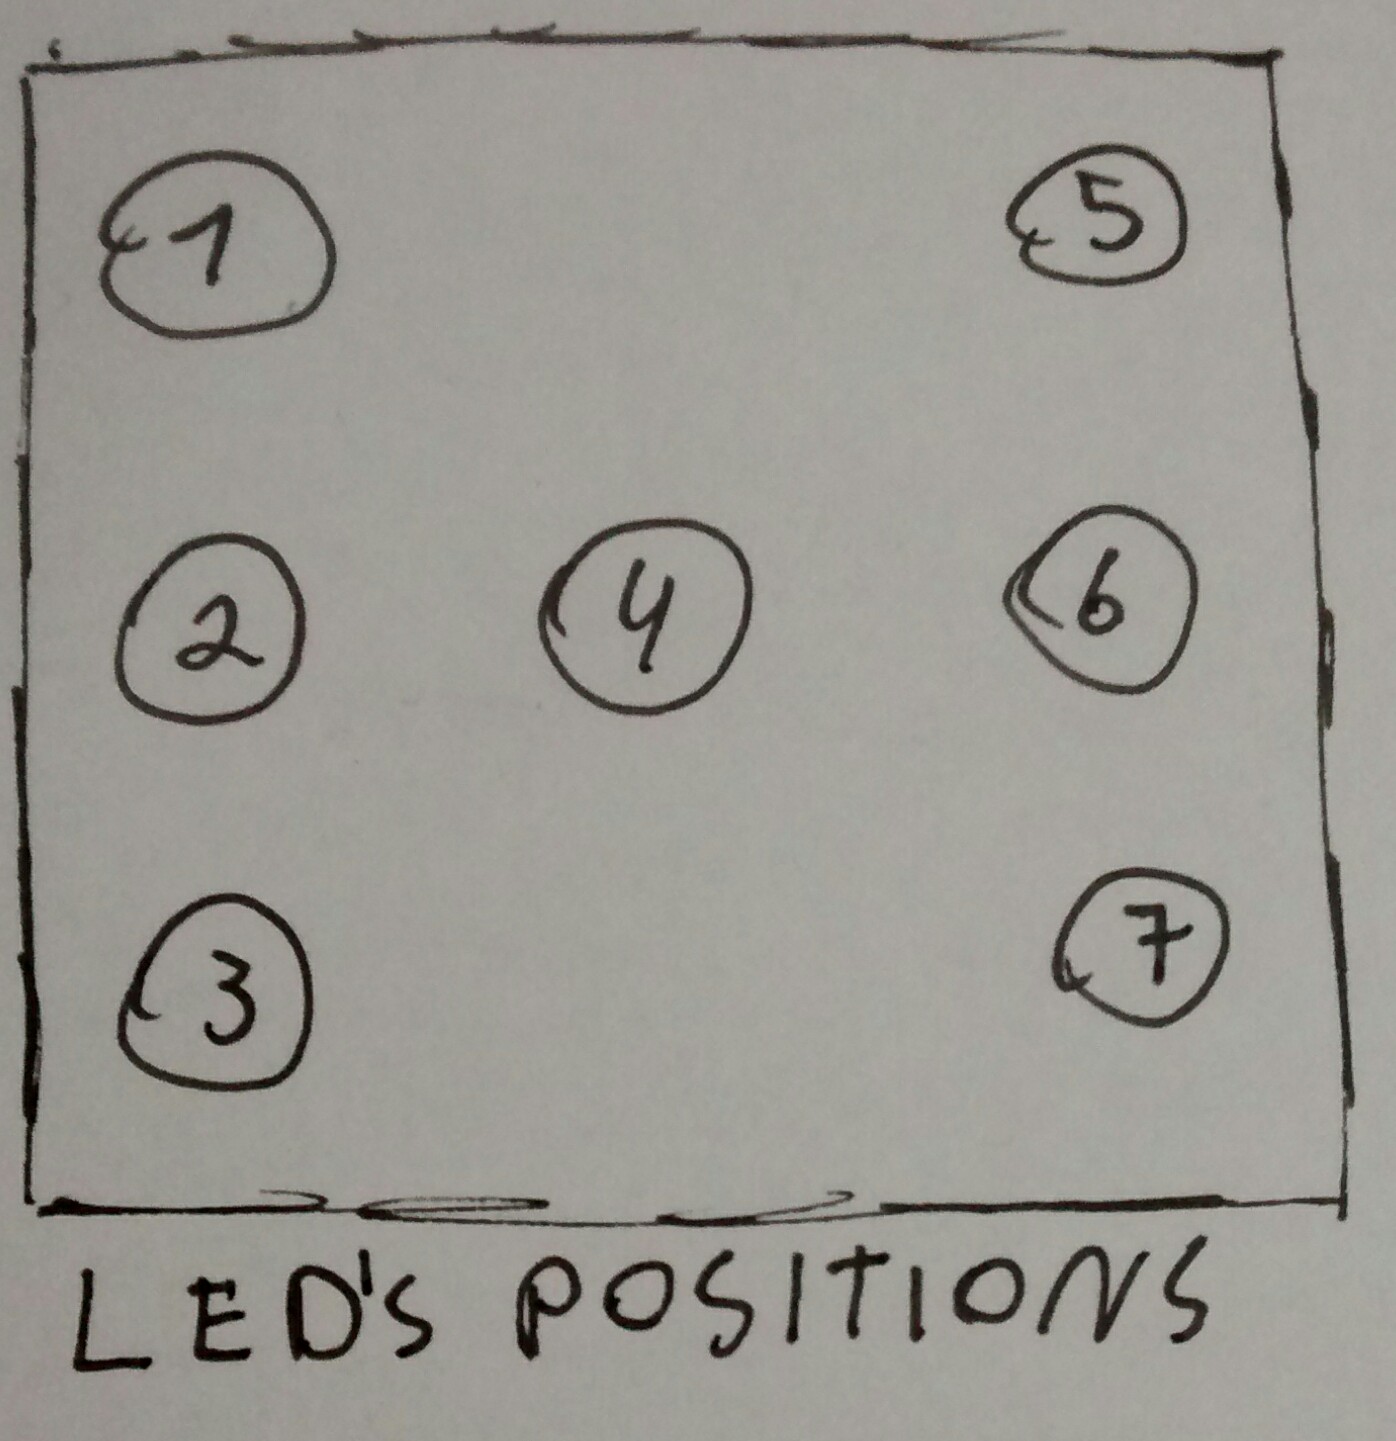 1 5
2 4 6
3 7
LED's POSITIONS